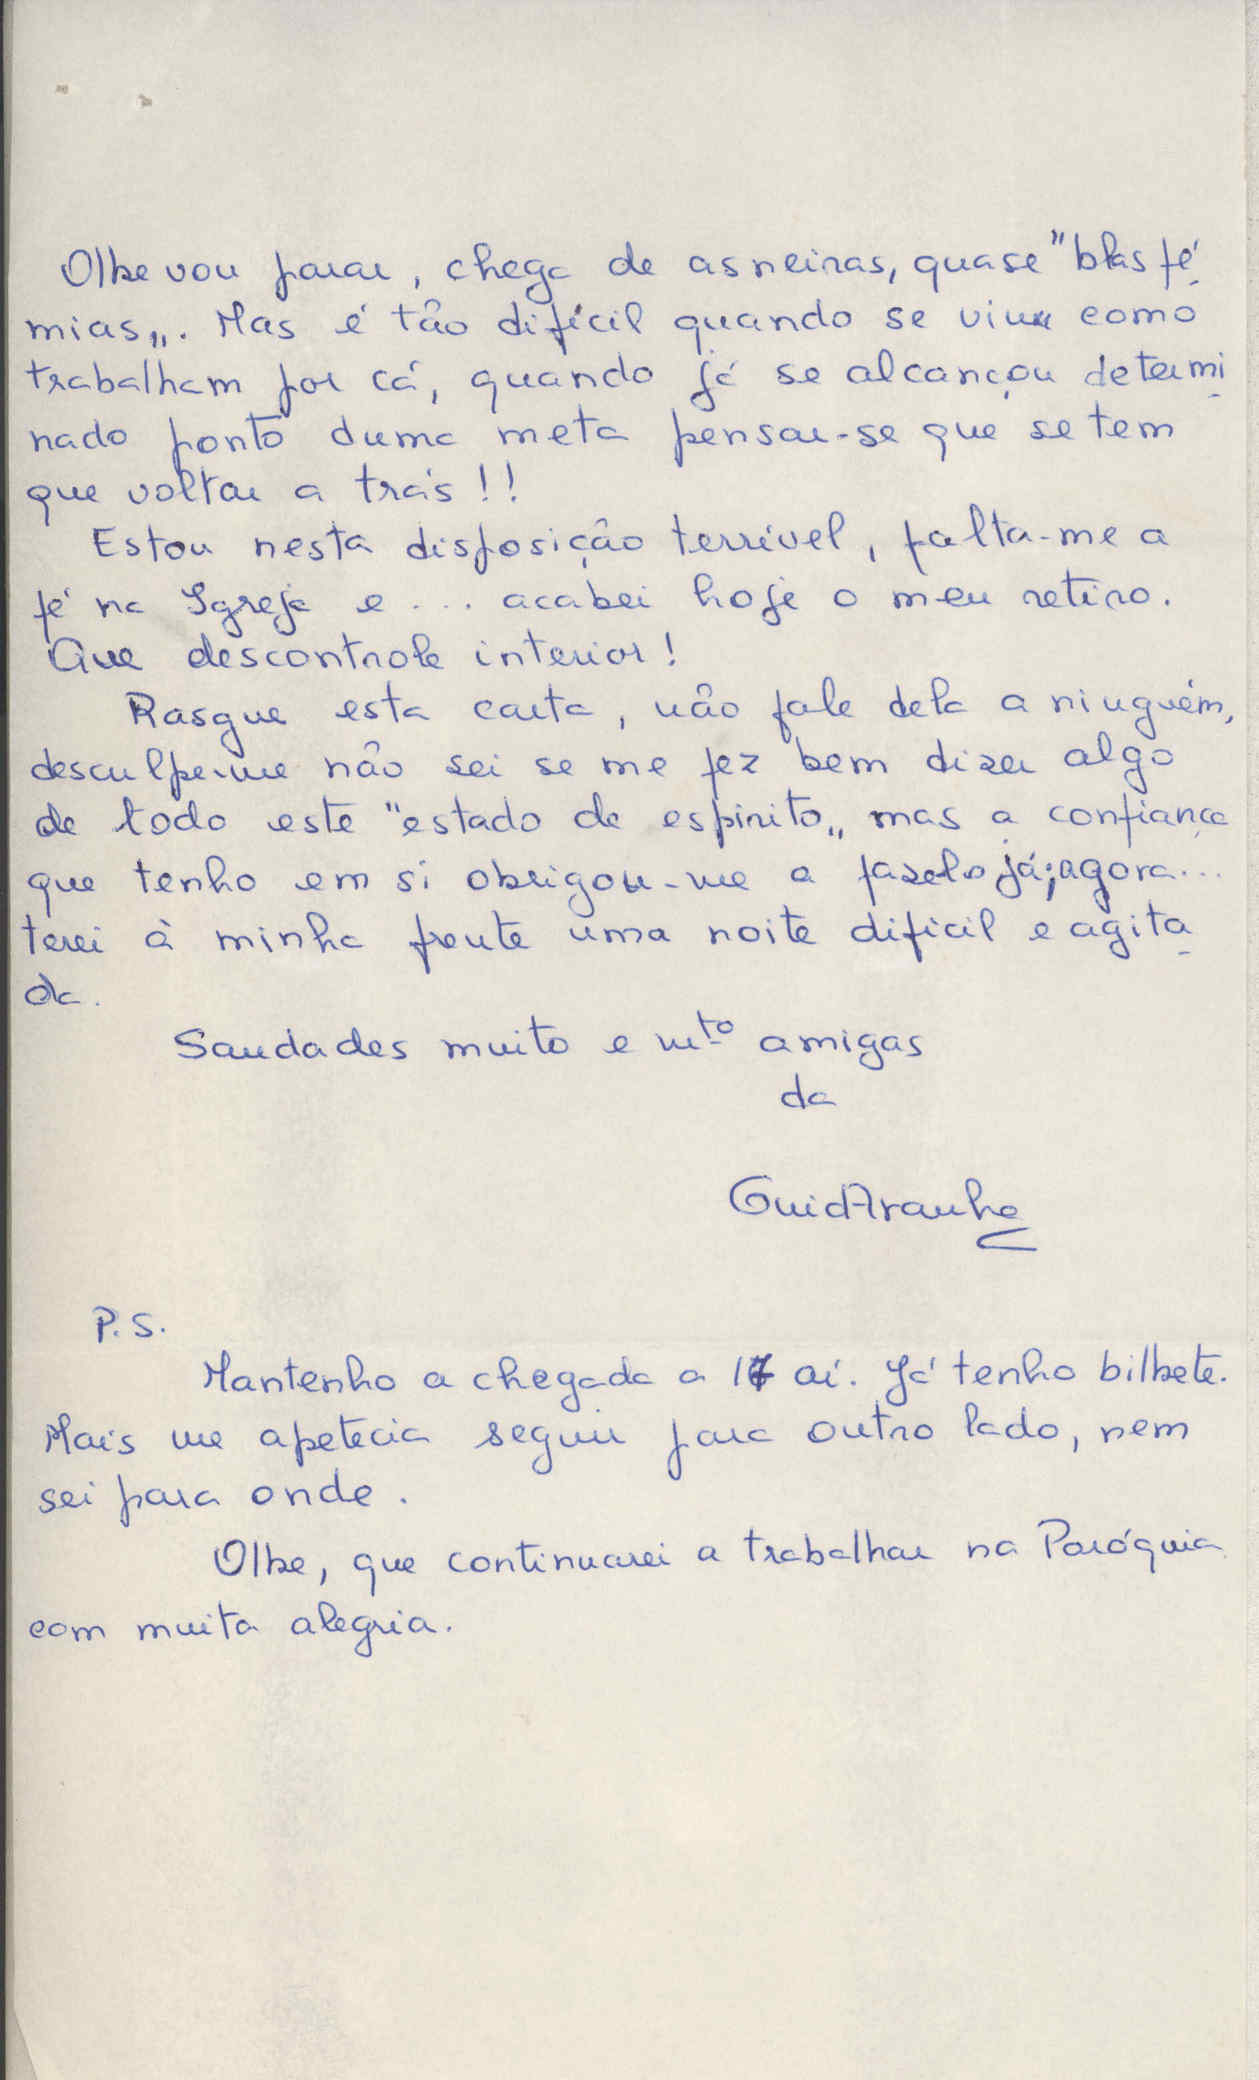 Olhe vou parar, chega de asneiras, quase "blasfé
mias". Mas é tão difícil quando se viu como
trabalham por cá, quando já se alcançou determi
nado ponto duma meta pensar-se que se tem
que voltar a trás!!
Estou nesta disposição terrível, falta-me a
fé na Igreja e... acabei hoje o meu retiro.
Que descontrole interior!
Rasgue esta carta, não fale dela a ninguém,
desculpe-me não sei se me fez bem dizer algo
de todo este "estado de espírito" mas a confiança
que tenho em si obrigou-me a fazelo já; agora...
terei à minha frente uma noite difícil e agita
da.
Saudades muito e mto amigas
da
GuidAranha
P.S.
Mantenho a chegada a 17 aí. Já tenho bilhete.
Mais me apetecia seguir para outro lado, nem
sei para onde.
Olhe, que continuarei a trabalhar na Paróquia
com muita alegria.